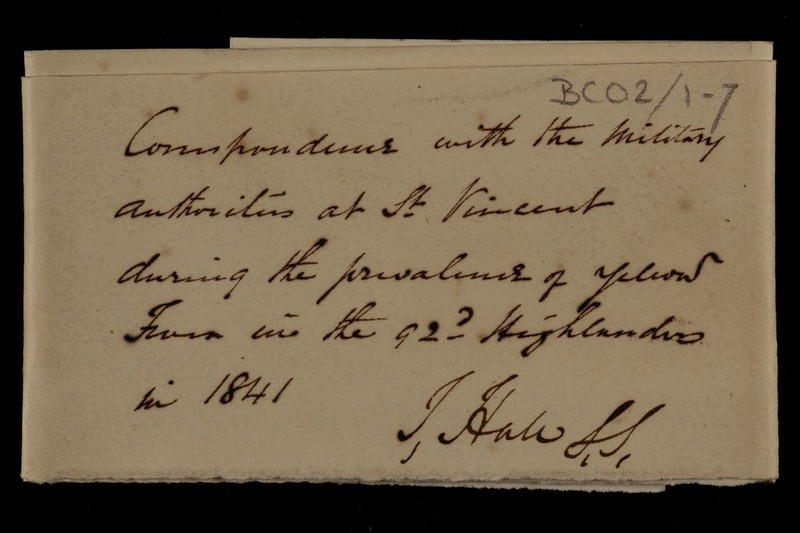 BCO2/1-7
Correspondence with the Military
authorities at St. Vincent
during the prevalence of Yellow
Fever in the 92d Highlanders
in 1841
J, Hall S.S,